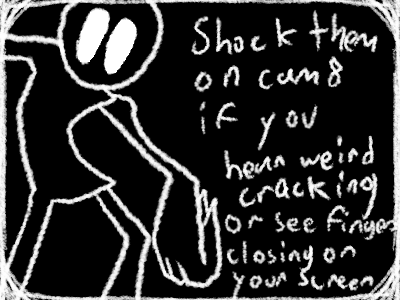 Shock them
on cam8
if you
hear weird
cracking
or see fingers
closing on
your screen